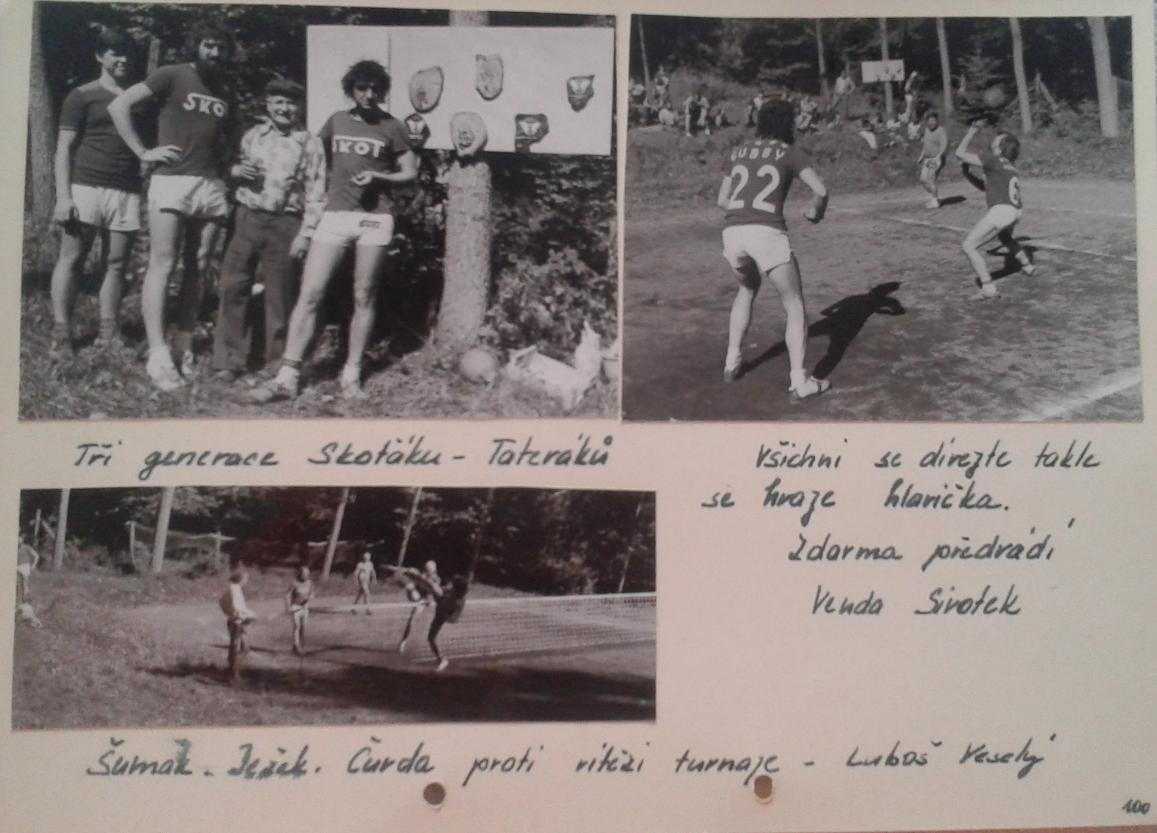 SKO
SKOT
BUBBY
22
6
Tři generace Skotáku - Tateráků
Všichni se dívejte takle
se hraje hlavička.
Zdarma předvádí
Venda Sivotek
Šumak. Ježek. Čurda proti vítězi turnaje - Luboš Veselý
100